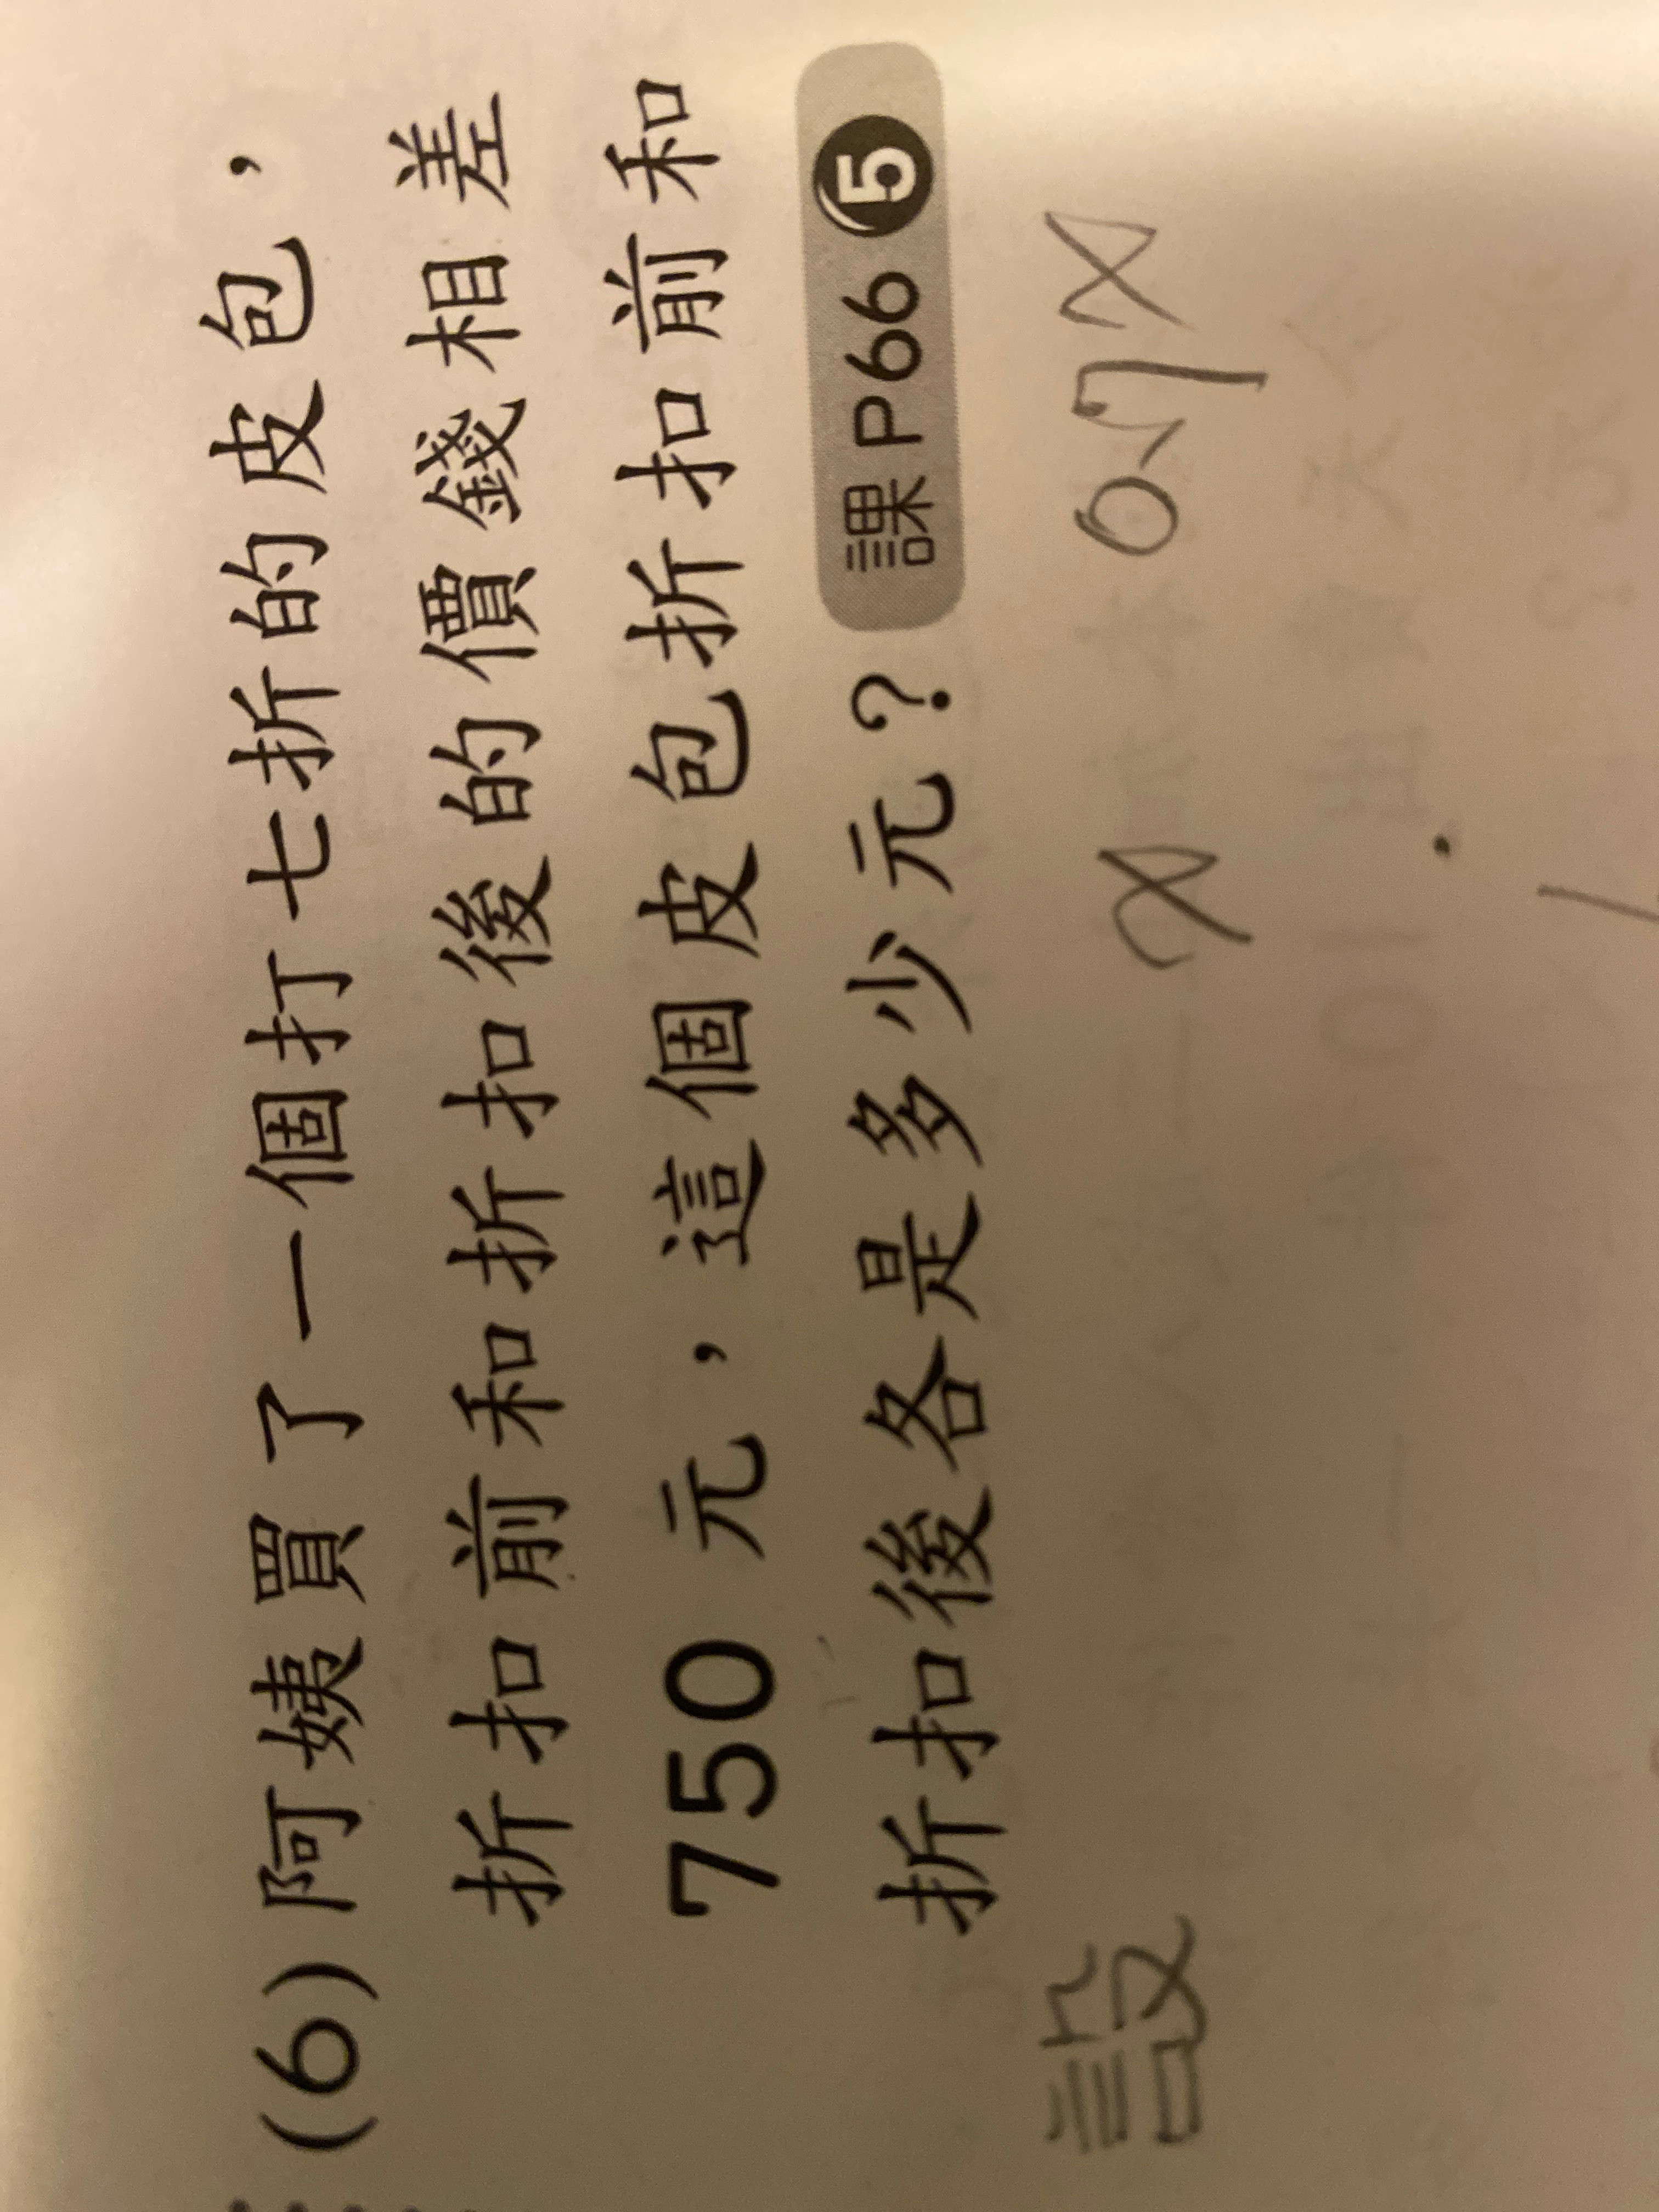 (6)阿姨買了一個打七折的皮包，
折扣前和折扣後的價錢相差
750 元，這個皮包折扣前和
折扣後各是多少元？ 課 P66 5
設 x 0.7x